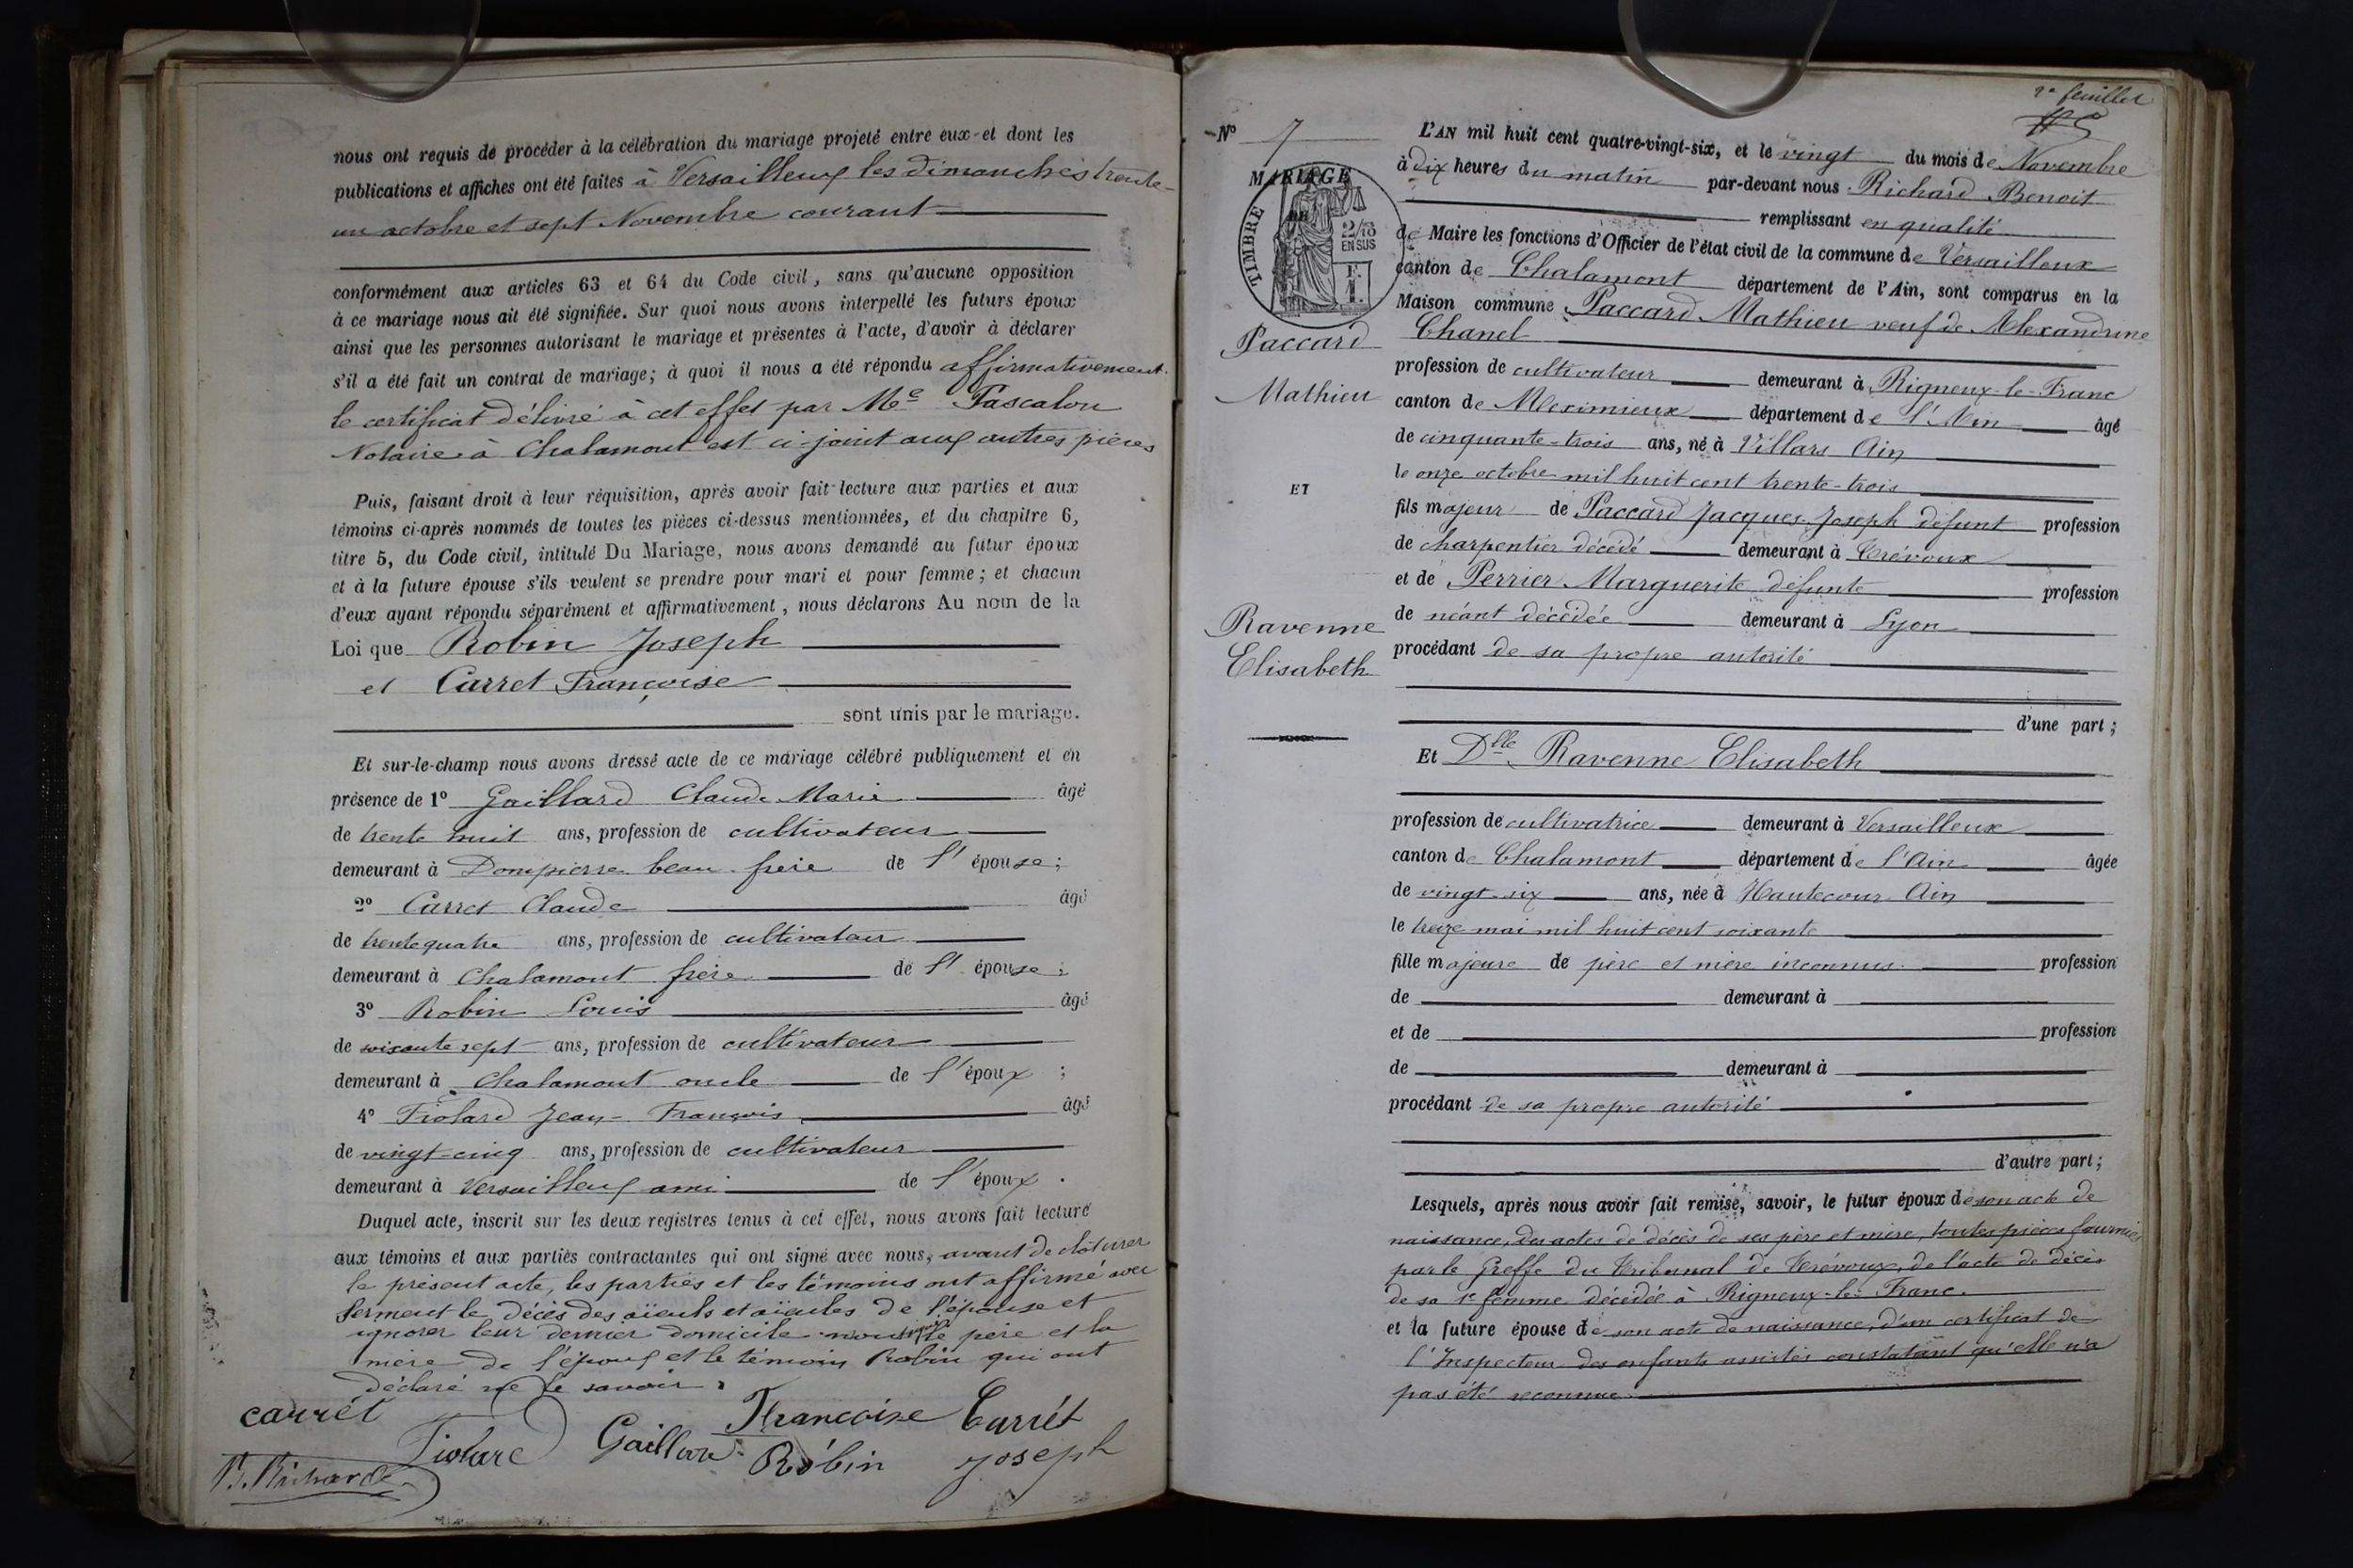 nous ont requis de procéder à la célébration du mariage projeté entre eux et dont les
publications et affiches ont été faites à Versailleux les dimanches trente-
un octobre et sept Novembre courant
conformément aux articles 63 et 64 du Code civil, sans qu'aucune opposition
à ce mariage nous ait été signifiée. Sur quoi nous avons interpellé les futurs époux
ainsi que les personnes autorisant le mariage et présentes à l'acte, d'avoir à déclarer
s'il a été fait un contrat de mariage; à quoi il nous a été répondu affirmativement.
le certificat délivré à cet effet par Me Pascalon
Notaire à Chalamont est ci-joint aux autres pièces
Puis, faisant droit à leur réquisition, après avoir fait lecture aux parties et aux
témoins ci-après nommés de toutes les pièces ci-dessus mentionnées, et du chapitre 6,
titre 5, du Code civil, intitulé Du Mariage, nous avons demandé au futur époux
et à la future épouse s'ils veulent se prendre pour mari et pour femme; et chacun
d'eux ayant répondu séparément et affirmativement, nous déclarons Au nom de la
Loi que Robin Joseph
et Carret Françoise
sont unis par le mariage.
Et sur-le-champ nous avons dressé acte de ce mariage célébré publiquement et en
présence de 1º Gaillard Claude Marie âgé
de trente huit ans, profession de cultivateur
demeurant à Dompierre beau-frère de l'épouse;
2º Carret Claude âgé
de trente quatre ans, profession de cultivateur
demeurant à Chalamont frère de l'épouse;
3º Robin Louis âgé
de soixante sept ans, profession de cultivateur
demeurant à Chalamont oncle de l'époux;
4º Fiolard Jean-François âgé
de vingt-cinq ans, profession de cultivateur
demeurant à Versailleux ami de l'époux.
Duquel acte, inscrit sur les deux registres tenus à cet effet, nous avons fait lecture
aux témoins et aux parties contractantes qui ont signé avec nous, avant de clôturer
le présent acte, les parties et les témoins ont affirmé avec
serment le décès des aïeuls et aïeules de l'épouse et
ignorer leur dernier domicile le père et la
mère de l'époux et le témoin Robin qui ont
déclaré ne le savoir.
carrét
Françoise Carrét
Fiolard
Gaillard
Robin Joseph
B. Richard
2e feuillet
Nº 7
L'AN mil huit cent quatre-vingt-six, et le vingt du mois de Novembre
à dix heures du matin par-devant nous Richard Benoit
remplissant en qualité
de Maire les fonctions d'Officier de l'état civil de la commune de Versailleux
canton de Chalamont département de l'Ain, sont comparus en la
Maison commune Paccard Mathieu veuf de Alexandrine
Chanel
profession de cultivateur demeurant à Rigneux-le-Franc
canton de Meximieux département de l'Ain âgé
de cinquante-trois ans, né à Villars Ain
le onze octobre mil huit cent trente-trois
fils majeur de Paccard Jacques-Joseph défunt profession
de charpentier décédé demeurant à Trévoux
et de Perrier Marguerite défunte profession
de néant décédée demeurant à Lyon
procédant de sa propre autorité
d'une part;
Et Dlle Ravenne Elisabeth
profession de cultivatrice demeurant à Versailleux
canton de Chalamont département de l'Ain âgée
de vingt-six ans, née à Hautecour Ain
le treize mai mil huit cent soixante
fille majeure de père et mère inconnus profession
de demeurant à
et de profession
de demeurant à
procédant de sa propre autorité
d'autre part;
Lesquels, après nous avoir fait remise, savoir, le futur époux de son acte de
naissance, des actes de décès de ses père et mère, toutes pièces fournies
par le Greffe du Tribunal de Trévoux, de l'acte de décès
de sa 1e femme décédée à Rigneux-le-Franc.
et la future épouse de son acte de naissance, d'un certificat de
l'Inspecteur des enfants assistés constatant qu'elle n'a
pas été reconnue.
MARIAGE
TIMBRE
2/10
EN SUS
F.
1.
Paccard
Mathieu
ET
Ravenne
Elisabeth